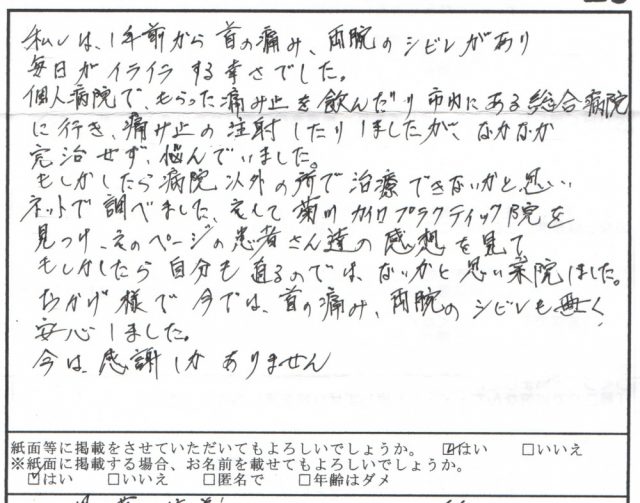 私は、1年前から首の痛み、両腕のシビレがあり
毎日がイライラする辛さでした。
個人病院で、もらった痛み止を飲んだり市内にある総合病院
に行き、痛み止の注射したりしましたが、なかなか
完治せず、悩んでいました。
もしかしたら病院以外の所で治療できないかと思い
ネットで調べました、そして菊川カイロプラクティック院を
見つけ、そのページの患者さん達の感想を見て
もしかしたら自分も治るのでは、ないかと思い来院しました。
おかげ様で今では、首の痛み、両腕のシビレも無く
安心しました。
今は、感謝しかありません
紙面等に掲載をさせていただいてもよろしいでしょうか。 ☑はい □いいえ
※紙面に掲載する場合、お名前を載せてもよろしいでしょうか。
☑はい □いいえ □匿名で □年齢はダメ